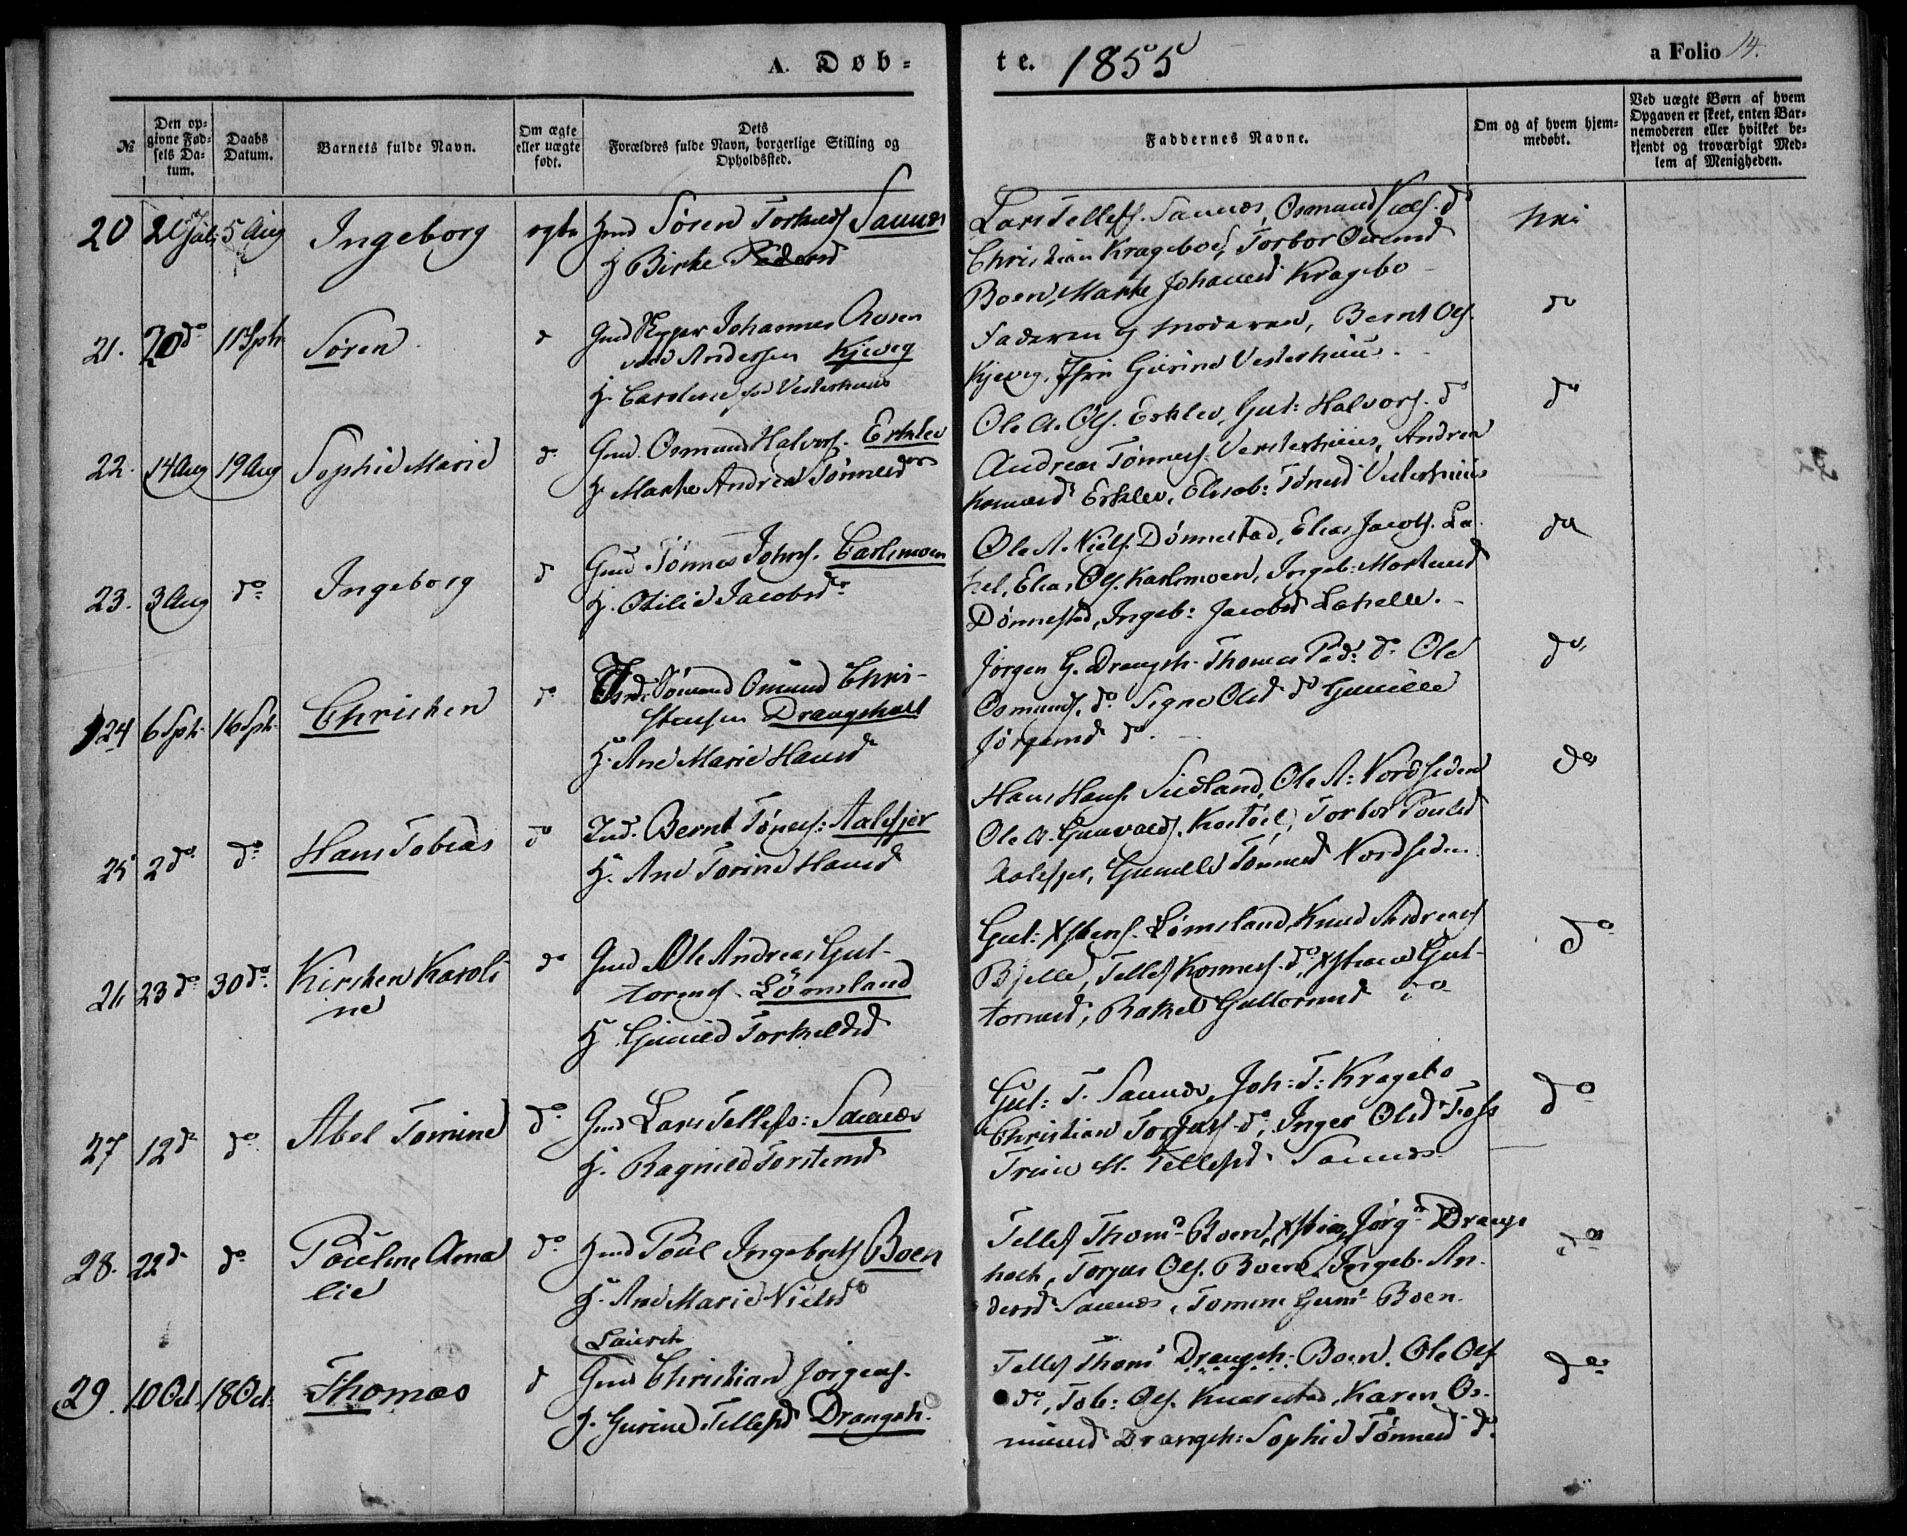 A. Døb-
te. 1855
a Folio 14.
№
Den op-
givne Fød-
sels Da-
tum.
Daabs
Datum.
Barnets fulde Navn.
Om ægte
eller uægte
født.
Dets
Forældres fulde Navn, borgerlige Stilling og
Opholdssted.
Faddernes Navne.
Om og af hvem hjem-
medøbt.
Ved uægte Børn af hvem
Opgaven er skeet, enten Bar-
nemoderen eller hvilket be-
kjendt og troværdigt Med-
lem af Menigheden.
20 Juli 5 Aug Ingeborg ægte Søren Saunes
H Birthe Pedersd
Lars Tellefs. Saunes, Osmund do
Christian Krageboe, Torbor
Boen, Marthe Johannesd Kragebo
nei
21. 20 do Søren d Johannes
Anderssen Kjevig
H. Caroline Vesterhuus
Faderen og Moderen, Bernt Ols.
Kjevig, Gurine Vesterhuus.
do
22. 14 Aug 19 Aug Sophie Marie do Gmd. Osmund Halvors. Erklev
H Marthe Andrea Tønnesd
Ole A. Ols. Erklev, Gut: Halvors. do
Andreas Tønnes. Vesterhuus, Andrea
Erklev, Elisab: Tønesd Vesterhuus
do
23. 3 Aug do Ingeborg d Gmd Tønnes Johns. Carlsmoen
H. Otilie Jacobsd
Ole A. Niels. Dønnestad, Elias Jacobs. La-
hel, Elias Ols. Karlsmoen, Ingeb: Mortensd
Dønnestad, Ingeb: Jacobsd Lahelle.
do
24 6 Spt. 16 Spt. Christen do Osmund Chri-
stensen Drangsholt
H. Ane Marie Hansd
Jørgen G. Drangsh. Thomas Ped: do Ole
Osmunds. do Signe Olsd do Gunille
Jørgensd do.
do
25 2 do do Hans Tobias do Ind. Bernt Tønes: Aalefjer
H. Ane Torine Hansd
Hans Hans. Sudland, Ole A: Nordsiden
Ole A. Gunvalds. Kostøel, Torbor Poulsd
Aalefjer, Gunelle Tønnesd Nordsiden
do
26 23 do 30 do Kirsten Karoli-
ne
do Gmd Ole Andreas Gut-
torms. Lømsland
H Gunild Torkeldsd
Gut: Xstens. Lømsland, Knud Andreas
Bjelle, Tellef do, Gut-
tormsd, Rakel Guttormsd do
do
27 12 do do Abel Tomine do Gmd Lars Tellefs: Saunes
H. Ragnild Torstensd
Gut: T. Saunes, Joh: T: Kragebo
Christian Torjus do, Inger Olsd Foss
Trine M. Tellefsd Saunes
do
28. 22 do do Pouline Ama-
lie
do Gmd Poul Ingebrets Boen
H. Ane Marie Nielsd
Tellef Thoms Boen, Xstian Jørgs Drangs-
holt, Torjus Ols. Boen, Ingeb. An-
dersd Saunes, Tomine Gunds Boen.
do
29. 10 Oct. 18 Oct. Thomas d Gmd Christian Jørgens.
H. Gurine Tellefsd Drangsh.
Tellef Thoms Drangsh: Boen, Ole Ols
do, Tob: Ols. Knarestad, Karen Os-
mundsd Drangsh: Sophie Tønnesd do.
do